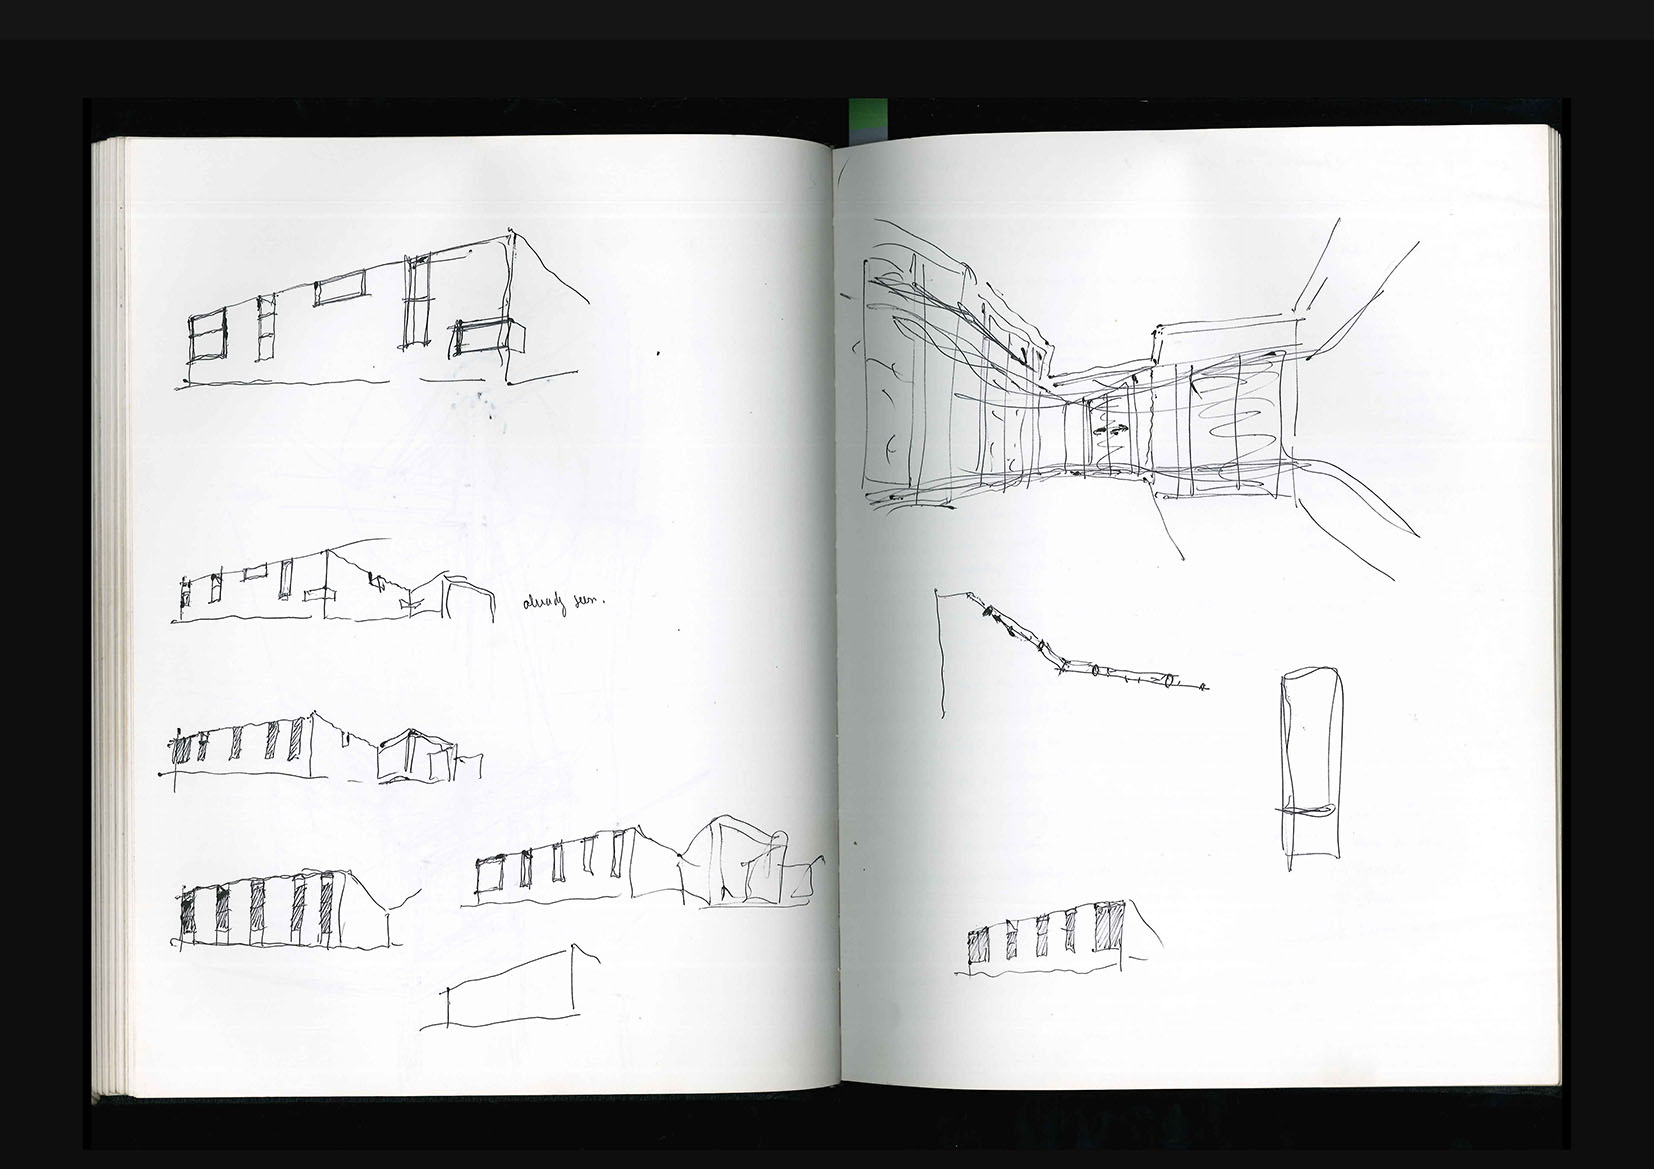 already seen.